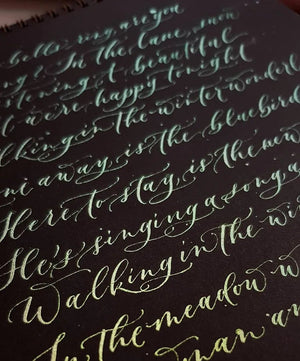 bells ring are you
? In the lane, snow
tening A beautiful
we're happy tonight
lking in the winter wonderl
ne away is the bluebird
Here to stay is the new
He's singing a song a
Walking in the wi
In the meadow w
man an